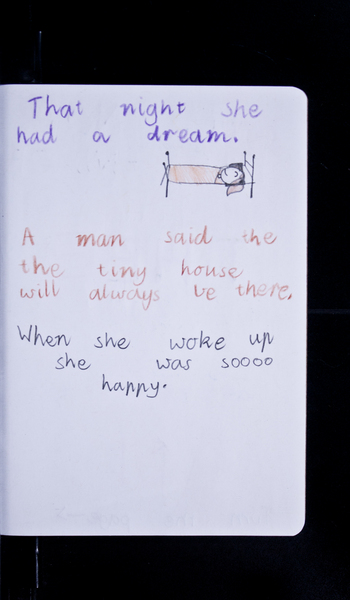 That night she
had a dream.
A man said the
the tiny house
will always be there.
When she woke up
she was soooo
happy.